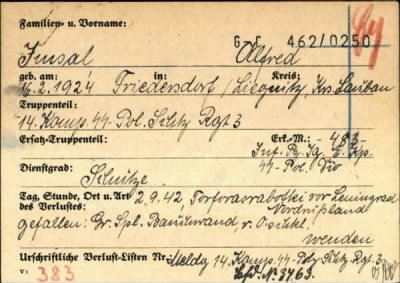 Familien- u. Vorname:
G-S 462/0250
Alfred
geb. am: in: Kreis:
16.2.1924 Friedersdorf / Liegnitz, Krs. Lauban
Truppenteil:
14. Komp. SS-Pol. Schtz Rgt 3
Ersatz-Truppenteil: Erk.-M.: - 483 -
Inf. Pz. Jg. E. Kp.
SS-Pol. Div
Dienstgrad:
Schütze
Tag, Stunde, Ort u. Art 2.9.42 vor Leningrad
des Verlustes: Nordrußland
gefallen. Gr. Spl. Bauchwand r.
wenden
Urschriftliche Verlust-Listen Nr.: Meldg 14. Komp. SS-Pol Schtz Rgt. 3
v: 383 Nr. 3463.